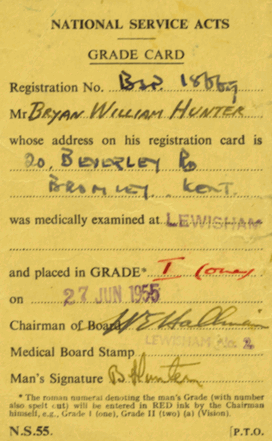 NATIONAL SERVICE ACTS
GRADE CARD
Registration No.
Mr BRYAN WILLIAM HUNTER
whose address on his registration card is
20. BEVERLEY RD
BROMLEY. KENT.
was medically examined at LEWISHAM
and placed in GRADE* I (one)
on 27 JUN 1955
Chairman of Board
Medical Board Stamp LEWISHAM No. 2
Man's Signature B Hunter
* The roman numeral denoting the man's Grade (with number
also spelt out) will be entered in RED ink by the Chairman
himself, e.g., Grade I (one), Grade II (two) (a) (Vision).
N.S.55. [P.T.O.